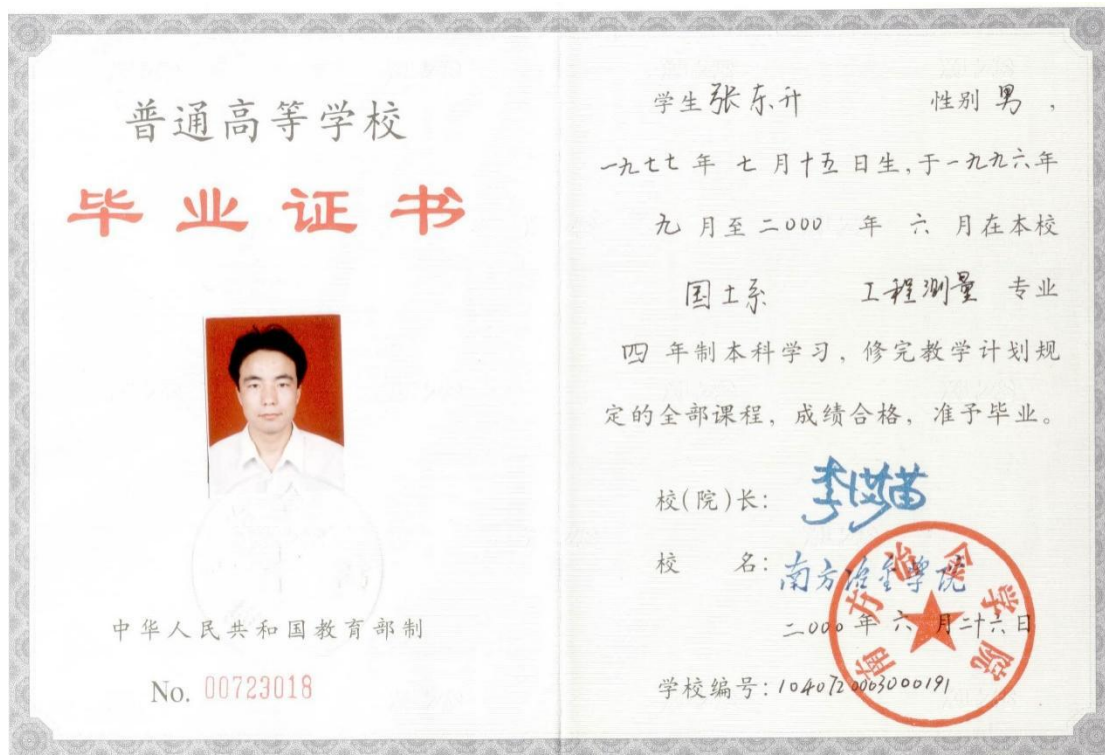 普通高等学校
毕业证书
中华人民共和国教育部制
No. 00723018
学生张东升 性别男,
一九七七年 七月十五日生,于一九九六年
九月至二000 年 六 月在本校
国土系 工程测量 专业
四 年制本科学习,修完教学计划规
定的全部课程,成绩合格,准予毕业。
校(院)长:
校 名:南方冶金学院
二000年六月二十六日
学校编号:1040720003000191
南方冶金学院